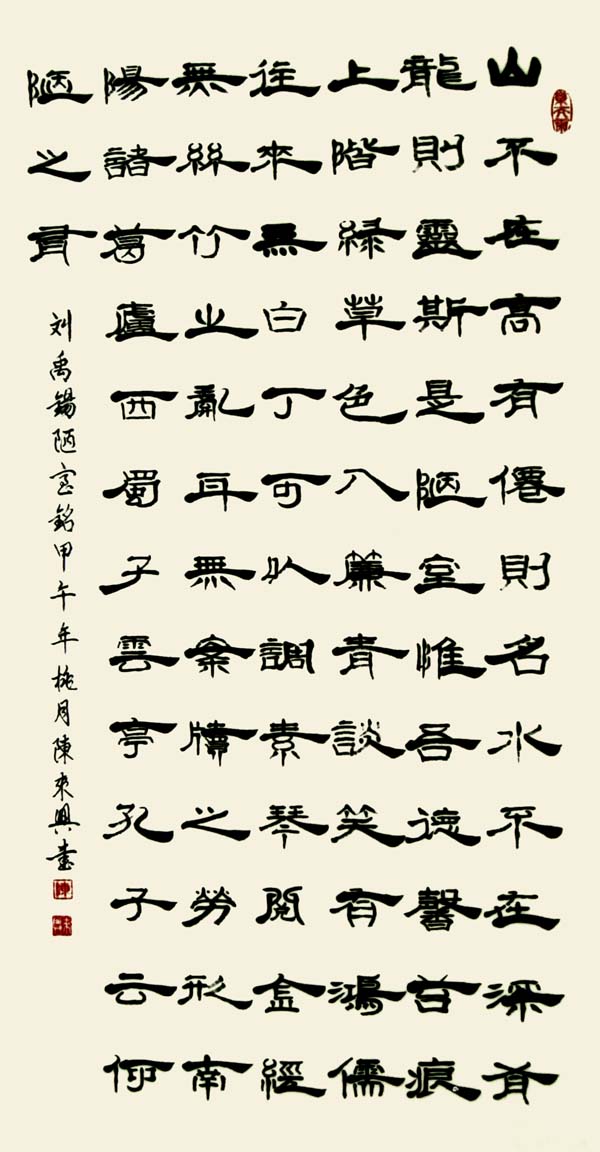 山不在高有僊則名水不在深有
龍則靈斯是陋室惟吾德馨苔痕
上階緑草色入簾青談笑有鴻儒
往來無白丁可以調素琴閱金經
無絲竹之亂耳無案牘之勞形南
陽諸葛廬西蜀子雲亭孔子云何
陋之有
刘禹錫陋室銘甲午年桃月陳來興書